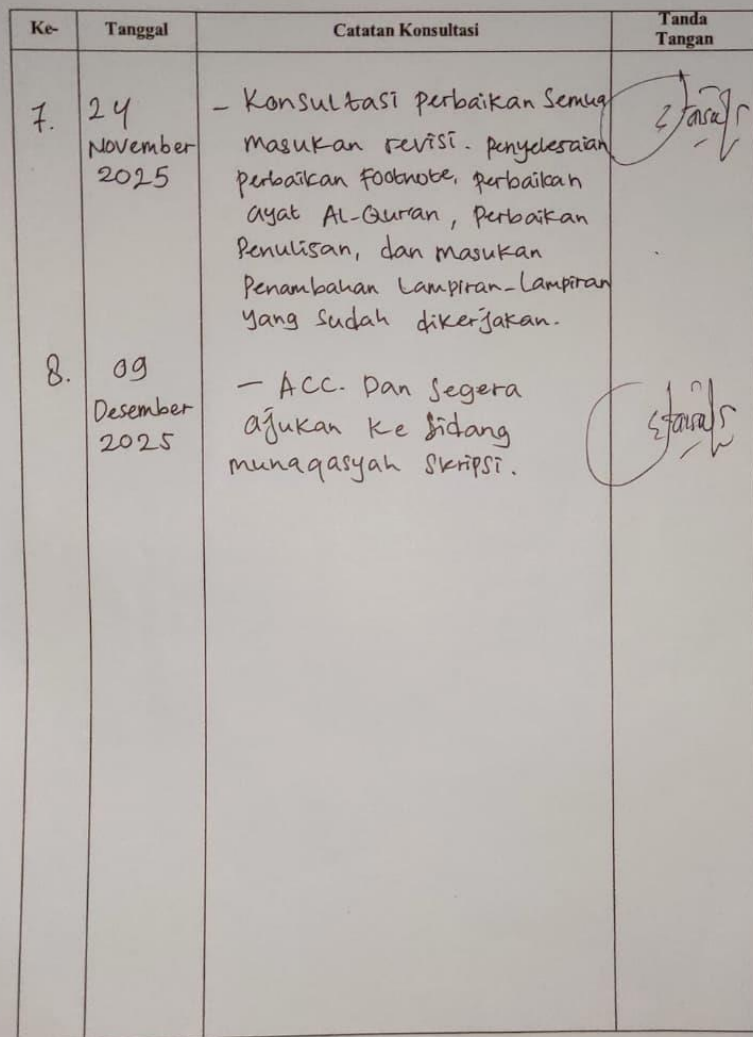 Ke- Tanggal Catatan Konsultasi Tanda Tangan
7. 24 November 2025
- Konsultasi perbaikan Semua
masukan revisi. penyelesaian
perbaikan Footnote, perbaikan
ayat Al-Quran, Perbaikan
Penulisan, dan masukan
Penambahan Lampiran-Lampiran
yang Sudah dikerjakan.
8. 09 Desember 2025
- ACC. Dan Segera
ajukan ke Sidang
munaqasyah Skripsi.